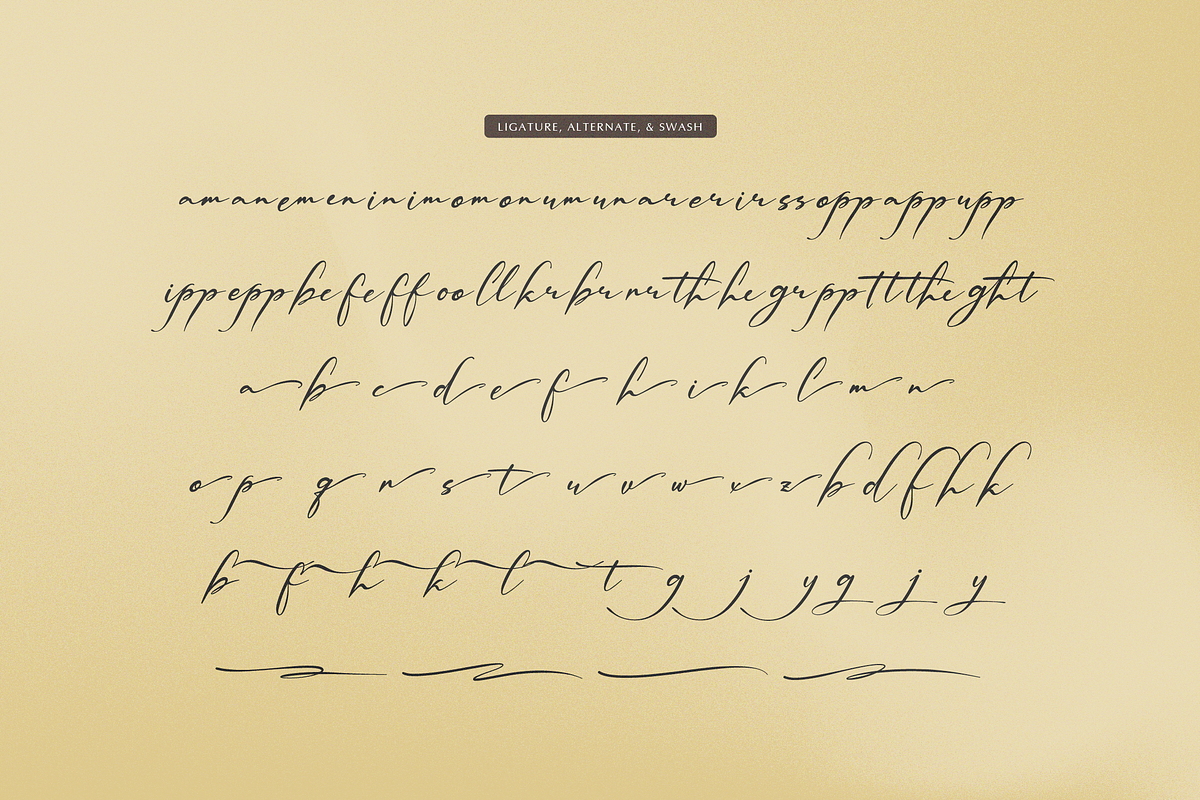 LIGATURE, ALTERNATE, & SWASH
amanemeninimomonumunarerirssoppappupp
ippeppbefeffoollkrbrnrththegrppttttheght
a b c d e f h i k l m n
o p q r s t u v w x z b d f h k
b f h k l t g j y g j y